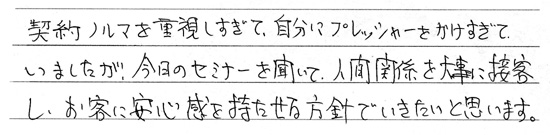 契約ノルマを重視しすぎて、自分にプレッシャーをかけすぎて
いましたが、今日のセミナーを聞いて、人間関係を大事に接客
し、お客に安心感を持たせる方針でいきたいと思います。